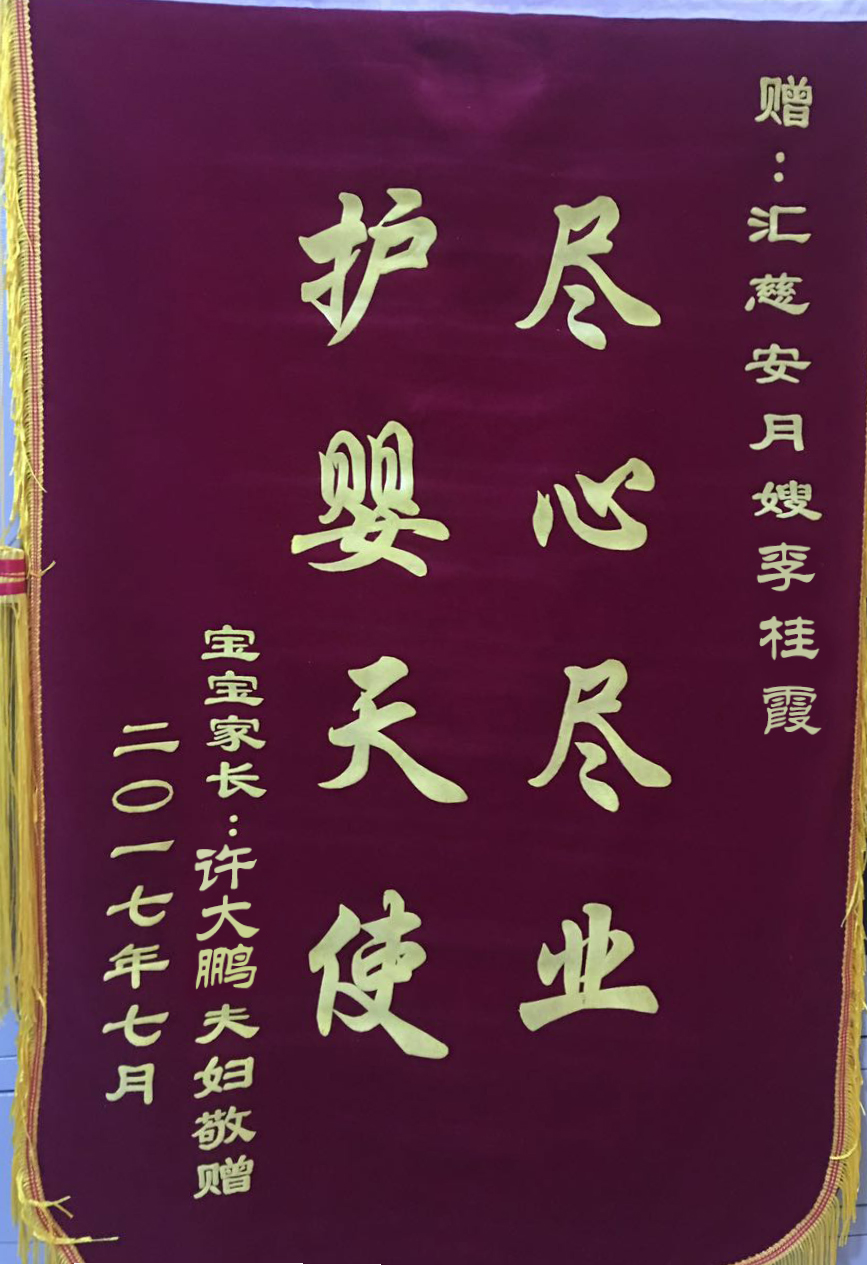 赠：汇慈安月嫂李桂霞
尽心尽业
护婴天使
宝宝家长：许大鹏夫妇敬赠
二〇一七年七月